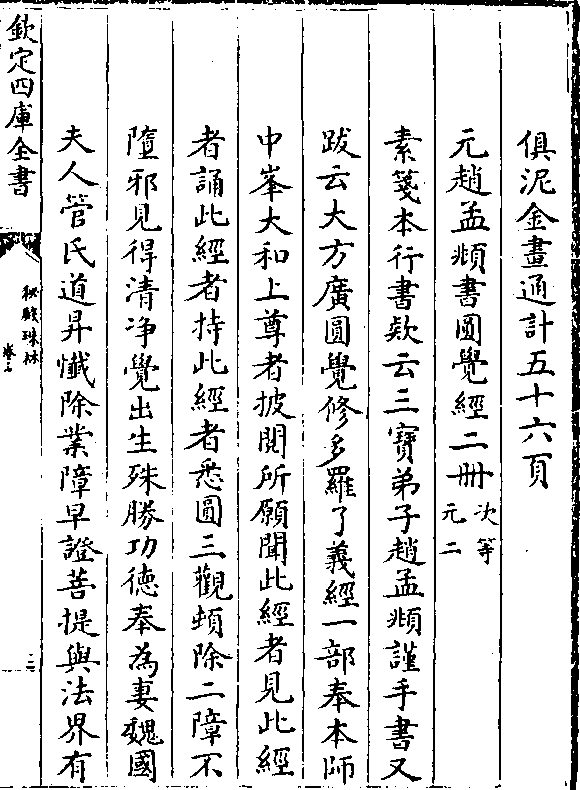 俱泥金畫通計五十六頁
元趙孟頫書圓覺經二冊次等元二
素箋本行書欵云三寶弟子趙孟頫謹手書又
跋云大方廣圓覺修多羅了義經一部奉本師
中峯大和上尊者披閱所願聞此經者見此經
者誦此經者持此經者悉圓三觀頓除二障不
墮邪見得清净覺出生殊勝功德奉為妻魏國
夫人管氏道昇懺除業障早證菩提與法界有
欽定四庫全書
秘殿珠林
卷三